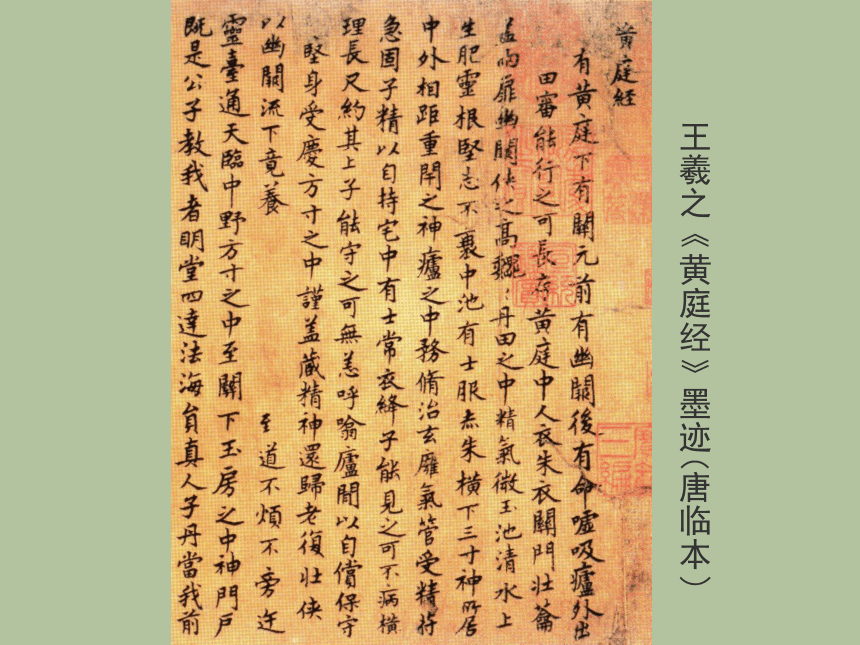 王羲之《黄庭经》墨迹(唐临本)
黄庭経
有黄庭下有關元前有幽闕後有命嘘吸廬外出
田審能行之可長存黄庭中人衣朱衣關門壯籥
蓋兩扉幽闕俠之高巍〻丹田之中精氣微玉池清水上
生肥靈根堅志不衰中池有士服赤朱橫下三寸神所居
中外相距重閇之神廬之中務脩治玄雍氣管受精符
急固子精以自持宅中有士常衣絳子能見之可不病橫
理長尺約其上子能守之可無恙呼噏廬間以自償保守
堅身受慶方寸之中謹盖藏精神還歸老復壯俠
以幽闕流下竟養 至道不煩不旁迕
靈臺通天臨中野方寸之中至關下玉房之中神門戶
既是公子教我者明堂四達法海負真人子丹當我前